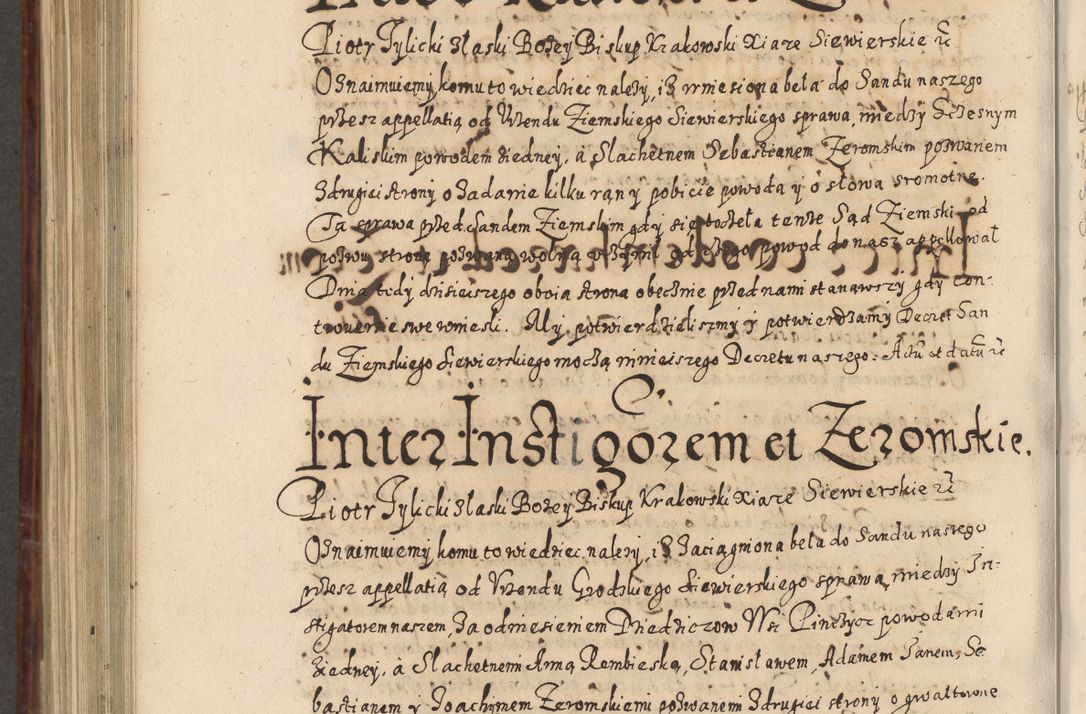 Piotr Tylicki Z łaski Bozey Biskup Krakowski Xiaze Siewierskie etc
Oznaimuiemy komu to wiedziec nalezy, iz wniesiona beła do Sandu naszego
przez appellatią od Urzendu Ziemskiego Siewierskiego sprawa, miedzy Sczesnym
Kaliskim powodem z iedney, a Slachetnem Sebastianem Zeromskim pozwanem
z drugiei strony o zadanie kilku ran y pobicie powoda y o słowa sromotne.
Ta sprawa przed Sandem Ziemskim gdy się toczeła tenze Sąd Ziemski od
pozwu stronę pozwaną wolną uczynił od czego powod do nasz appellował
Dnia tedy dzisieiszego oboia strona obecznie przed nami stanąwszy gdy con-
trouersie swe wniesli. My potwierdzieliszmy y potwierdzamy Decret San
du Ziemskiego Siewierskiego moczą ninieiszego Decretu naszego. Actu et datu etc
Inter Instigorem et Zeromskie.
Piotr Tylicki Z łaski Bozey Biskup Krakowski Xiaze Siewierskie etc
Oznaimuiemy komu to wiedziec nalezy, iz zaciągniona beła do Sandu naszego
przez appellatią od Urzendu Grodzkiego Siewierskiego sprawa, miedzy In-
stigatorem naszem, za odniesieniem Dziedziczow Wsi Pinczyc powodami
z iedney, a Slachetnemi Anną Rembieską, Stanisławem, Adamem Janem, Se
bastianem y Joachymem Zeromskiemi pozwanemi z drugiei strony o gwałtowne